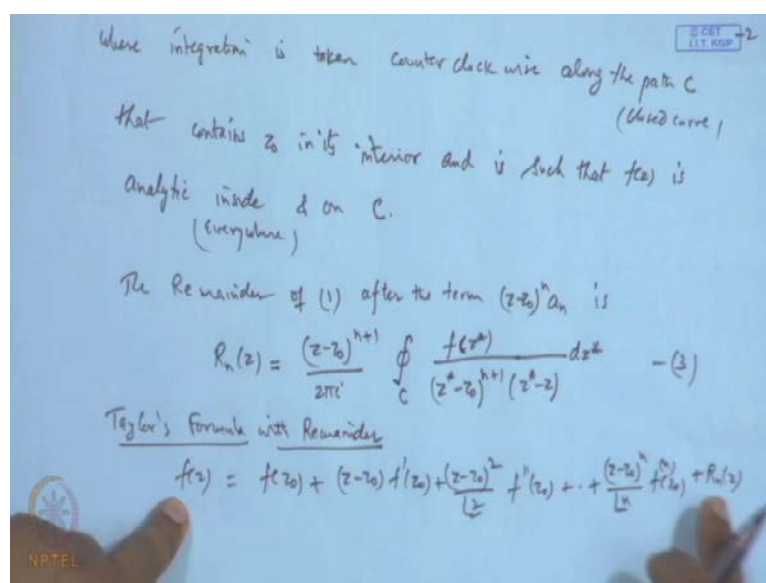 © CET
I.I.T. KGP
-2
where integration is taken counter clock wise along the path C
(closed curve)
that contains z₀ in its interior and is such that f(z) is
analytic inside & on C.
(Everywhere)
The Remainder of (1) after the term (z-z₀)ⁿ aₙ is
Rₙ(z) = (z-z₀)ⁿ⁺¹ / 2πi ∮_C f(z*) / (z*-z₀)ⁿ⁺¹ (z*-z) dz* - (3)
Taylor's Formula with Remainder
f(z) = f(z₀) + (z-z₀) f'(z₀) + (z-z₀)² / ⌊2 f''(z₀) + .. + (z-z₀)ⁿ / ⌊n f⁽ⁿ⁾(z₀) + Rₙ(z)
NPTEL